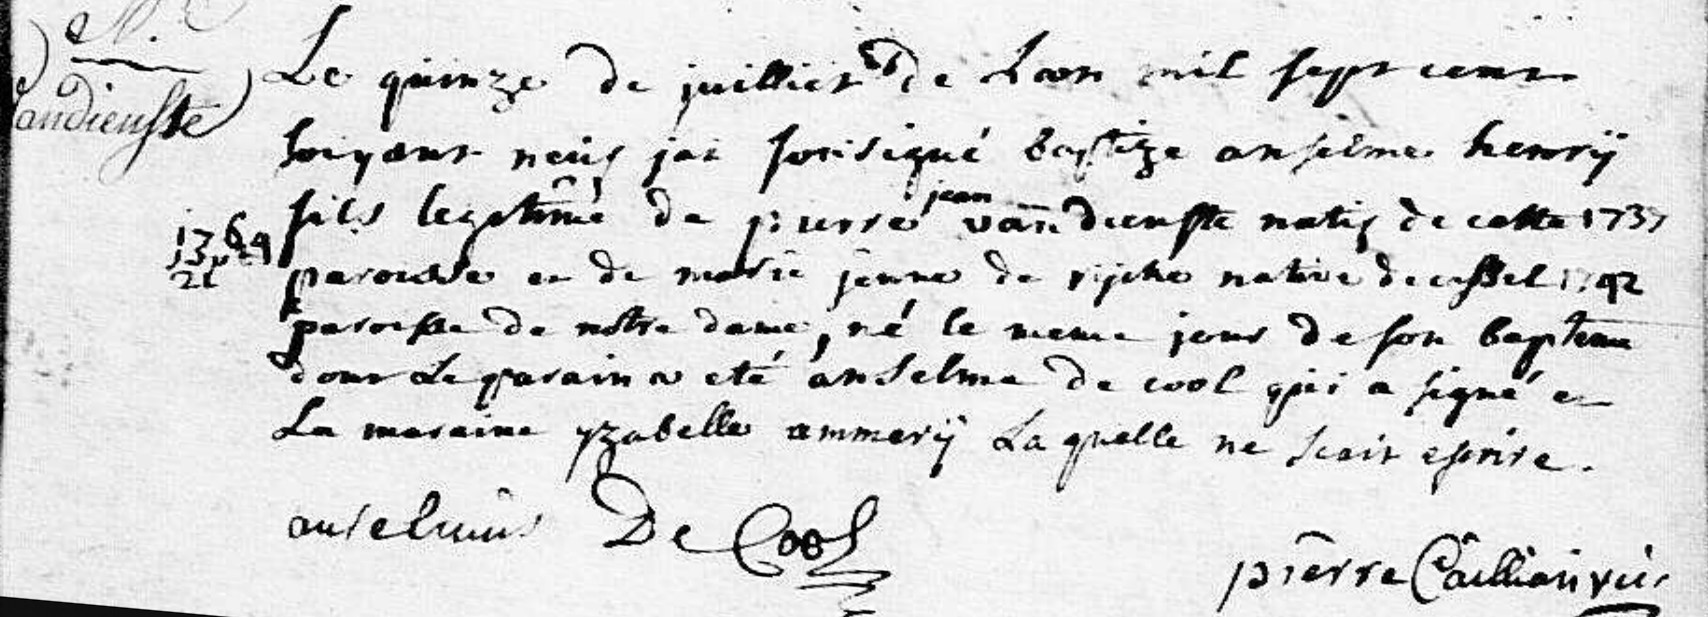 N.
Vandienste
Le quinze de juilliet de L'aon mil sept cent
soixant neuf jai sousigné baptize anselme henrÿ
fils legetime de pierre jean van dienste natif de cette 1737
1769
paroisse et de marie jenne de rÿcke native de cassel 1742
paroisse de notre dame, né le meme jour de son bapteme
dont Le parain a eté anselme de cool qui a signé et
La maraine yzabelle ammerÿ La quelle ne scait esrire.
anselmus De Cool
pierre Cailliau vic